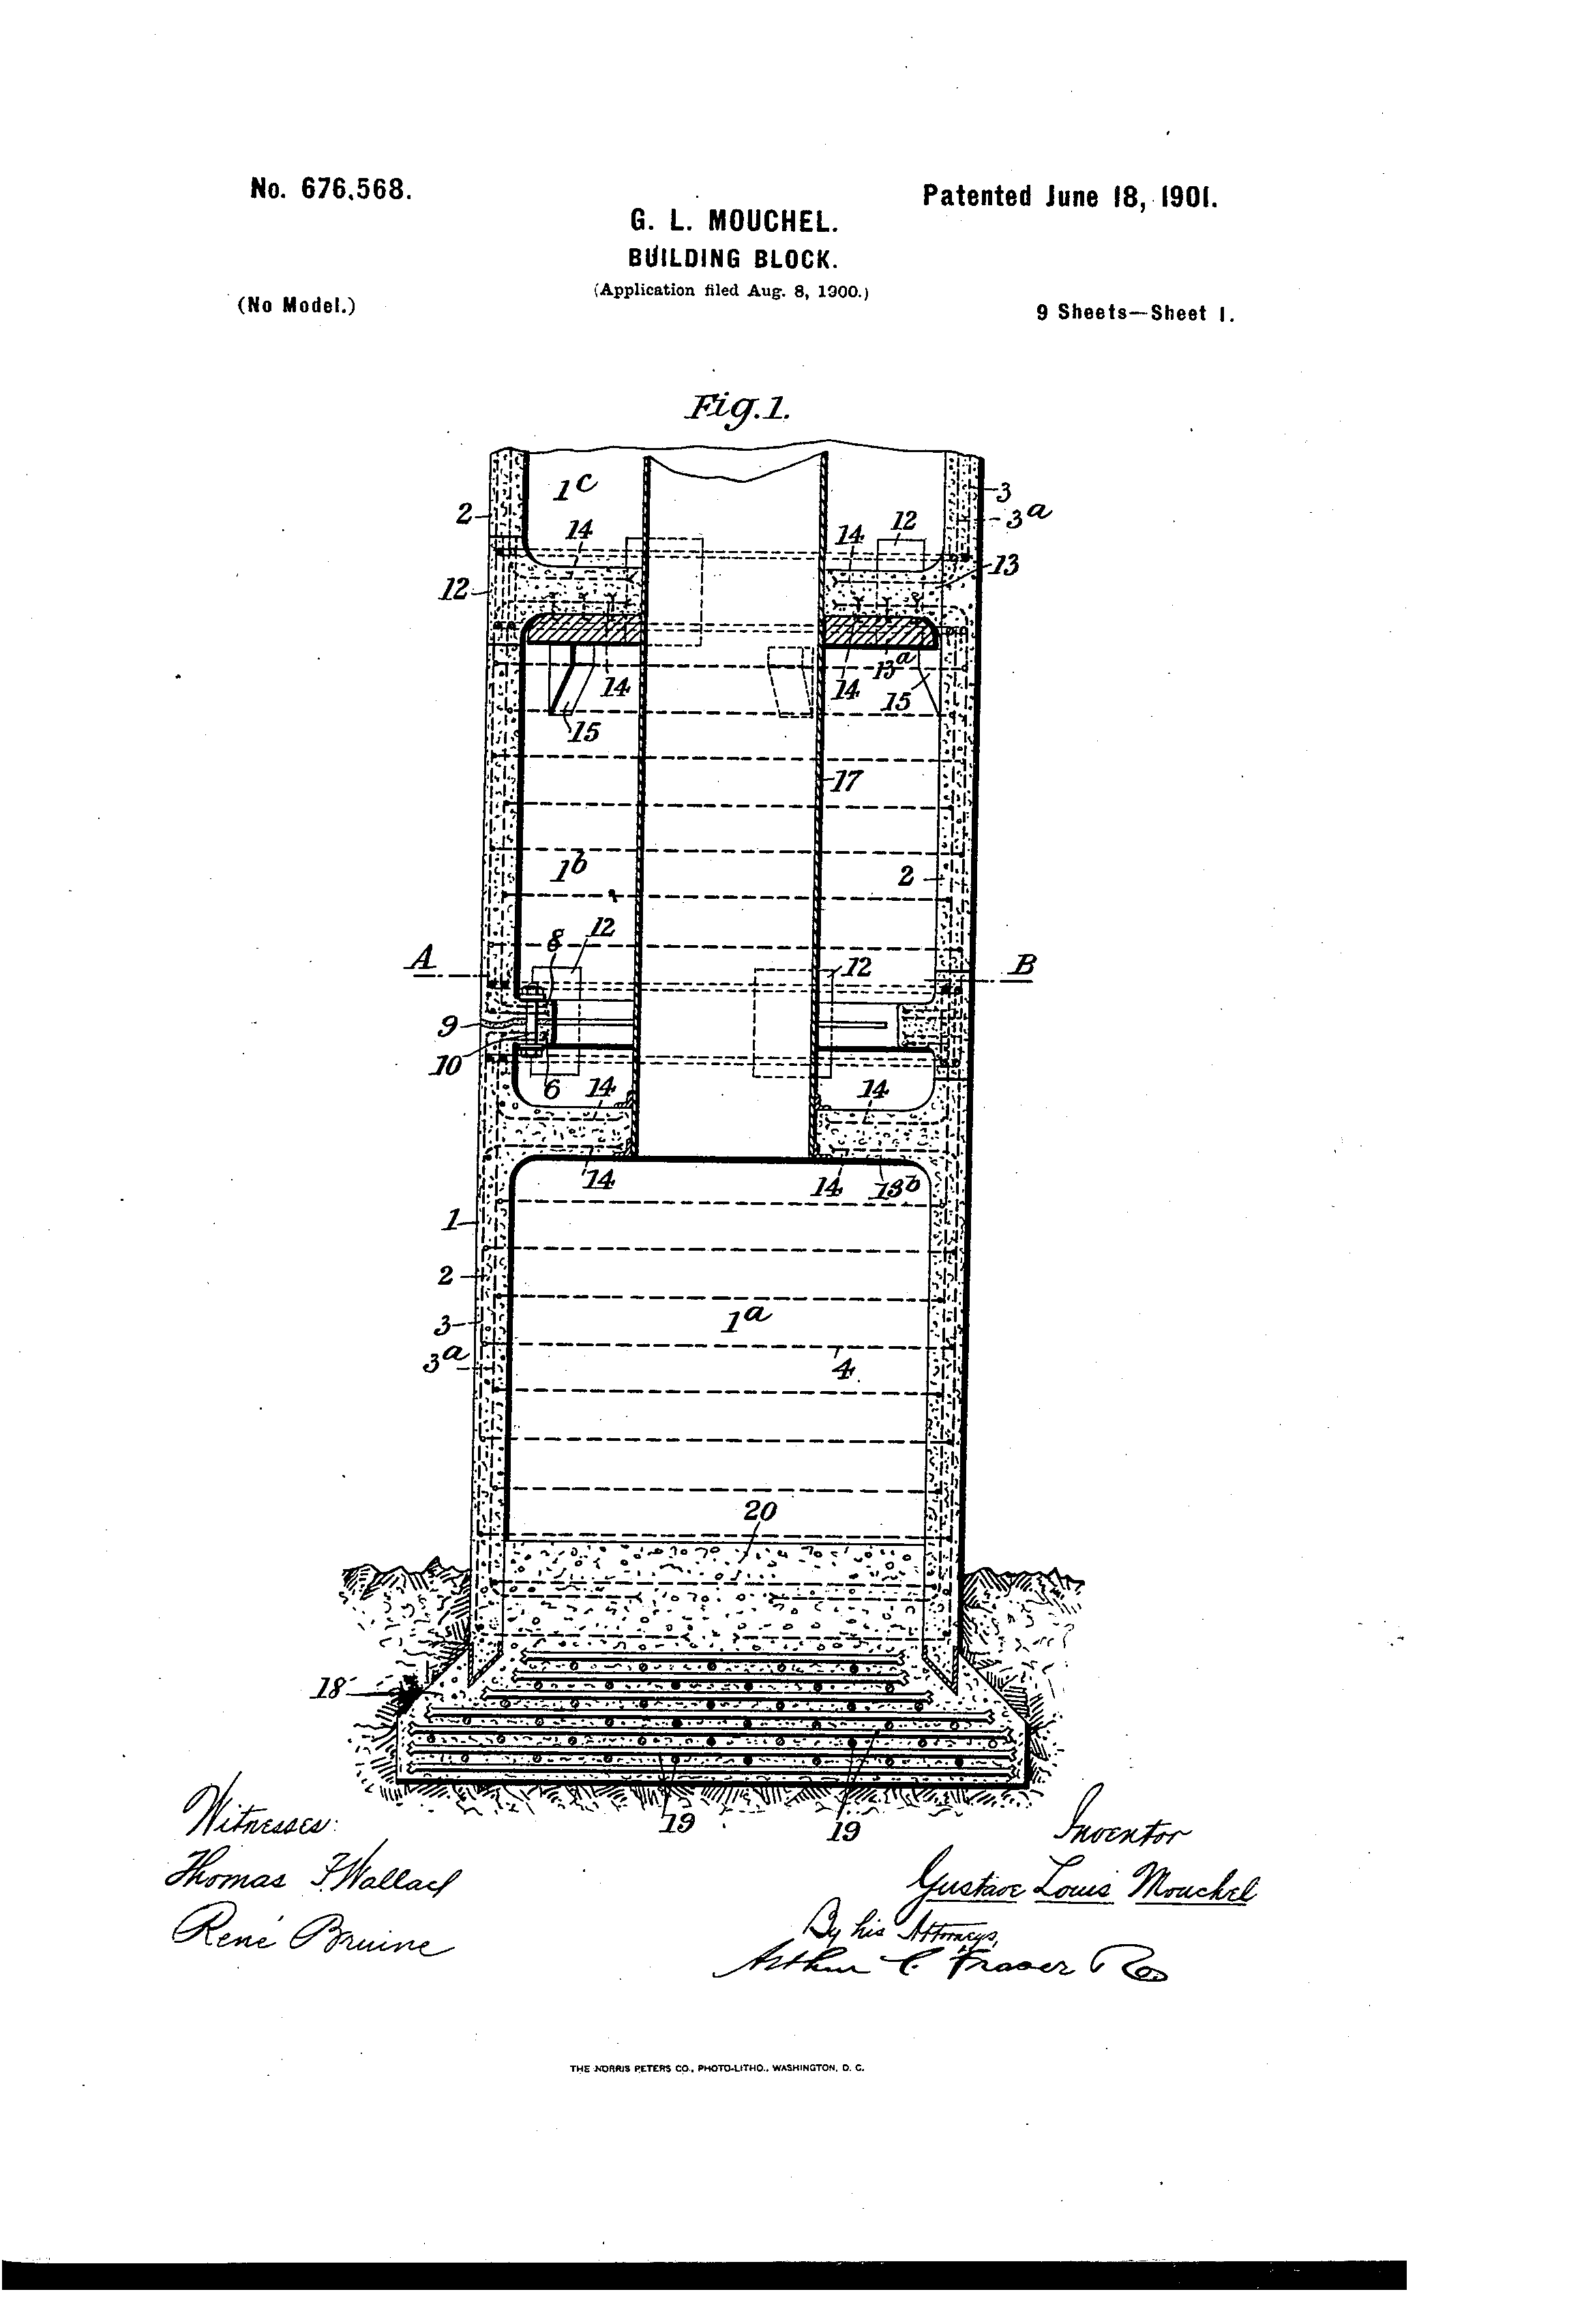 No. 676,568.
Patented June 18, 1901.
G. L. MOUCHEL.
BUILDING BLOCK.
(Application filed Aug. 8, 1900.)
(No Model.)
9 Sheets—Sheet 1.
Fig. 1.
1c
2
3
3a
14
14
12
12
13
14
14
13a
15
15
17
1b
2
8
12
12
A
B
9
10
6
14
14
14
14
13b
1
2
3
3a
1a
4
20
18
19
19
Witnesses:
Thomas F. Wallace
René Bruine
Inventor
Gustave Louis Mouchel
By his Attorneys,
Arthur C. Fraser & Co.
THE NORRIS PETERS CO., PHOTO-LITHO., WASHINGTON, D. C.